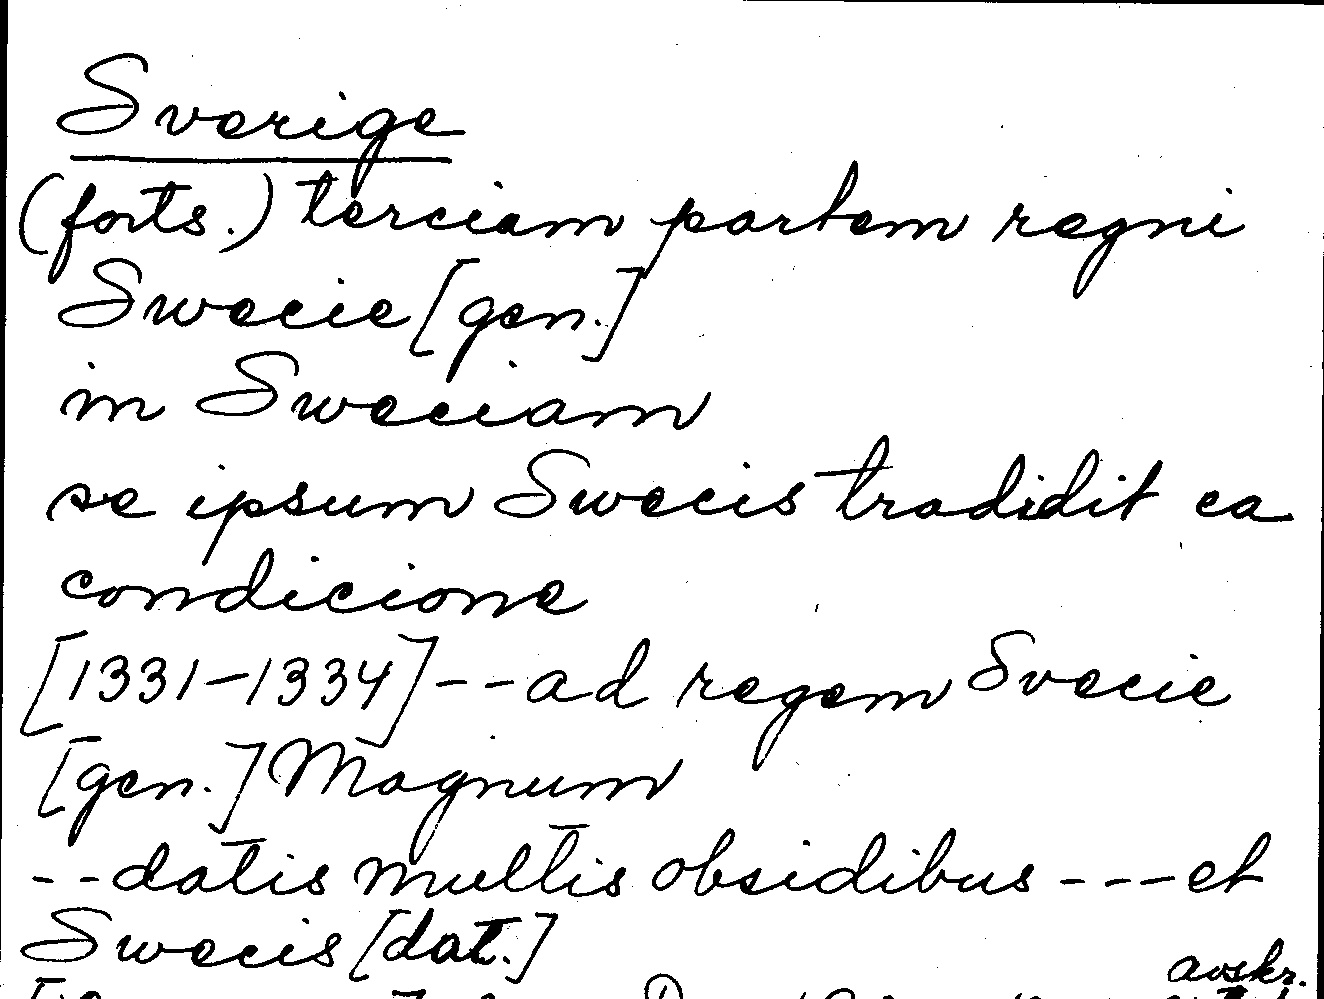 Sverige
(forts.) terciam partem regni
Swecie [gen.]
in Sweciam
se ipsum Swecis tradidit ea
condicione
[1331-1334]--ad regem Svecie
[gen.] Magnum
--datis multis obsidibus ---et
Swecis [dat.]
avskr.